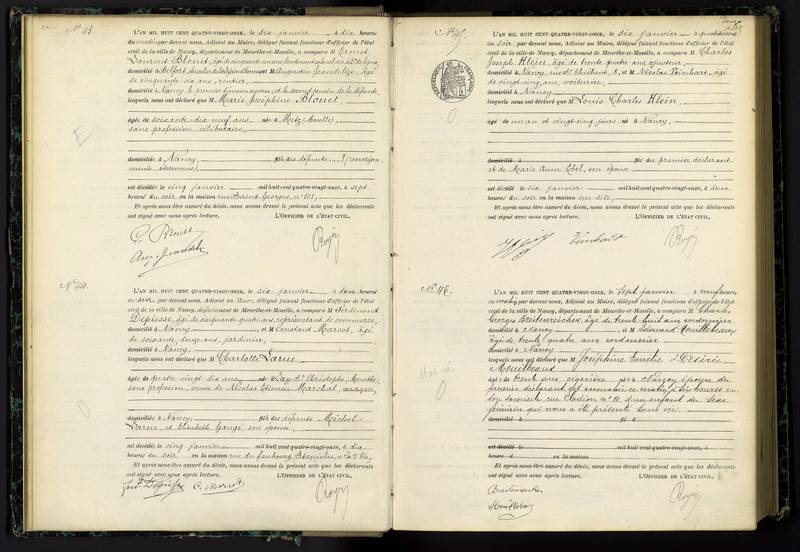 N° 43.
L'AN MIL HUIT CENT QUATRE-VINGT-ONZE, le six janvier à dix heures
du matin par devant nous, Adjoint au Maire, délégué faisant fonctions d'officier de l'état
civil de la ville de Nancy, département de Meurthe-et-Moselle, a comparu M Ernest
Laurent Blouet, âgé de cinquante
domicilié à Belfort et M Augustin Jeandelize, âgé
de cinquante six ans, rentier,
domicilié à Nancy, le premier témoin neveu et le second cousin de la défunte,
lesquels nous ont déclaré que M Marie Joséphine Blouet,
âgée de soixante dix neuf ans, née à Metz (Moselle),
sans profession, célibataire,
domiciliée à Nancy, fille des défunts
est décédée le cinq janvier mil huit cent quatre-vingt-onze, à sept
heures du soir en la maison rue Saint Georges, n° 101,
Et après nous être assuré du décès, nous avons dressé le présent acte que les déclarants
ont signé avec nous après lecture. L'OFFICIER DE L'ÉTAT CIVIL,
E. Blouet
Aug. Jeandelize
N° 44.
L'AN MIL HUIT CENT QUATRE-VINGT-ONZE, le six janvier à deux heures
du soir par devant nous, Adjoint au Maire, délégué faisant fonctions d'officier de l'état
civil de la ville de Nancy, département de Meurthe-et-Moselle, a comparu M Ferdinand
Depisse, âgé de cinquante quatre ans, représentant de commerce,
domicilié à Nancy et M Constant Marcot, âgé
de soixante douze ans, jardinier,
domicilié à Nancy
lesquels nous ont déclaré que M Charlotte Larue
âgée de quatre vingt dix ans, née à Christophe, Meurthe,
sans profession, veuve de Nicolas Etienne Marchal, maçon,
domiciliée à Nancy, fille des défunts Michel
Larue, et Elisabeth Gangé, son épouse,
est décédée le cinq janvier mil huit cent quatre-vingt-onze, à dix
heures du soir en la maison rue du faubourg Stanislas, n° 45 bis,
Et après nous être assuré du décès, nous avons dressé le présent acte que les déclarants
ont signé avec nous après lecture. L'OFFICIER DE L'ÉTAT CIVIL,
C. Marcot
N° 45.
L'AN MIL HUIT CENT QUATRE-VINGT-ONZE, le six janvier à quatre heures
du soir par devant nous, Adjoint au Maire, délégué faisant fonctions d'officier de l'état
civil de la ville de Nancy, département de Meurthe-et-Moselle, a comparu M Charles
Joseph Klein, âgé de trente quatre ans, ajusteur,
domicilié à Nancy, rue Thiébaut, 8, et M Nicolas Veinhart, âgé
de vingt cinq ans, voiturier,
domicilié à Nancy
lesquels nous ont déclaré que M Louis Charles Klein,
âgé de un an et vingt cinq jours né à Nancy,
domicilié à fils du premier déclarant
et de Marie Anne Ebel, son épouse,
est décédé le six janvier mil huit cent quatre-vingt-onze, à deux
heures du soir en la maison sus dite,
Et après nous être assuré du décès, nous avons dressé le présent acte que les déclarants
ont signé avec nous après lecture. L'OFFICIER DE L'ÉTAT CIVIL,
N° 46.
L'AN MIL HUIT CENT QUATRE-VINGT-ONZE, le sept janvier à neuf heures
du matin par devant nous, Adjoint au Maire, délégué faisant fonctions d'officier de l'état
civil de la ville de Nancy, département de Meurthe-et-Moselle, a comparu M Charles
Georges âgé de trente huit ans cordonnier
domicilié à Nancy et M Edouard
âgé de trente quatre ans cordonnier
domicilié à Nancy
lesquels nous ont déclaré que M Joséphine Désirée
âgée de trente ans, née à épouse du
premier déclarant est accouchée ce matin à six heures en
son domicile, rue n° 10 d'un enfant du sexe
féminin qui nous a été présenté sans vie.
domicilié à fil d
est décédé le mil huit cent quatre-vingt-onze, à
heures d en la maison
Et après nous être assuré du décès, nous avons dressé le présent acte que les déclarants
ont signé avec nous après lecture. L'OFFICIER DE L'ÉTAT CIVIL,